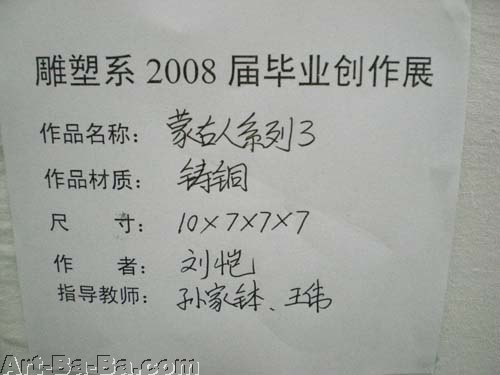 雕塑系 2008 届毕业创作展
作品名称： 蒙古人系列3
作品材质： 铸铜
尺 寸： 10×7×7×7
作 者： 刘恺
指导教师： 孙家钵、王伟
Art-Ba-Ba.com